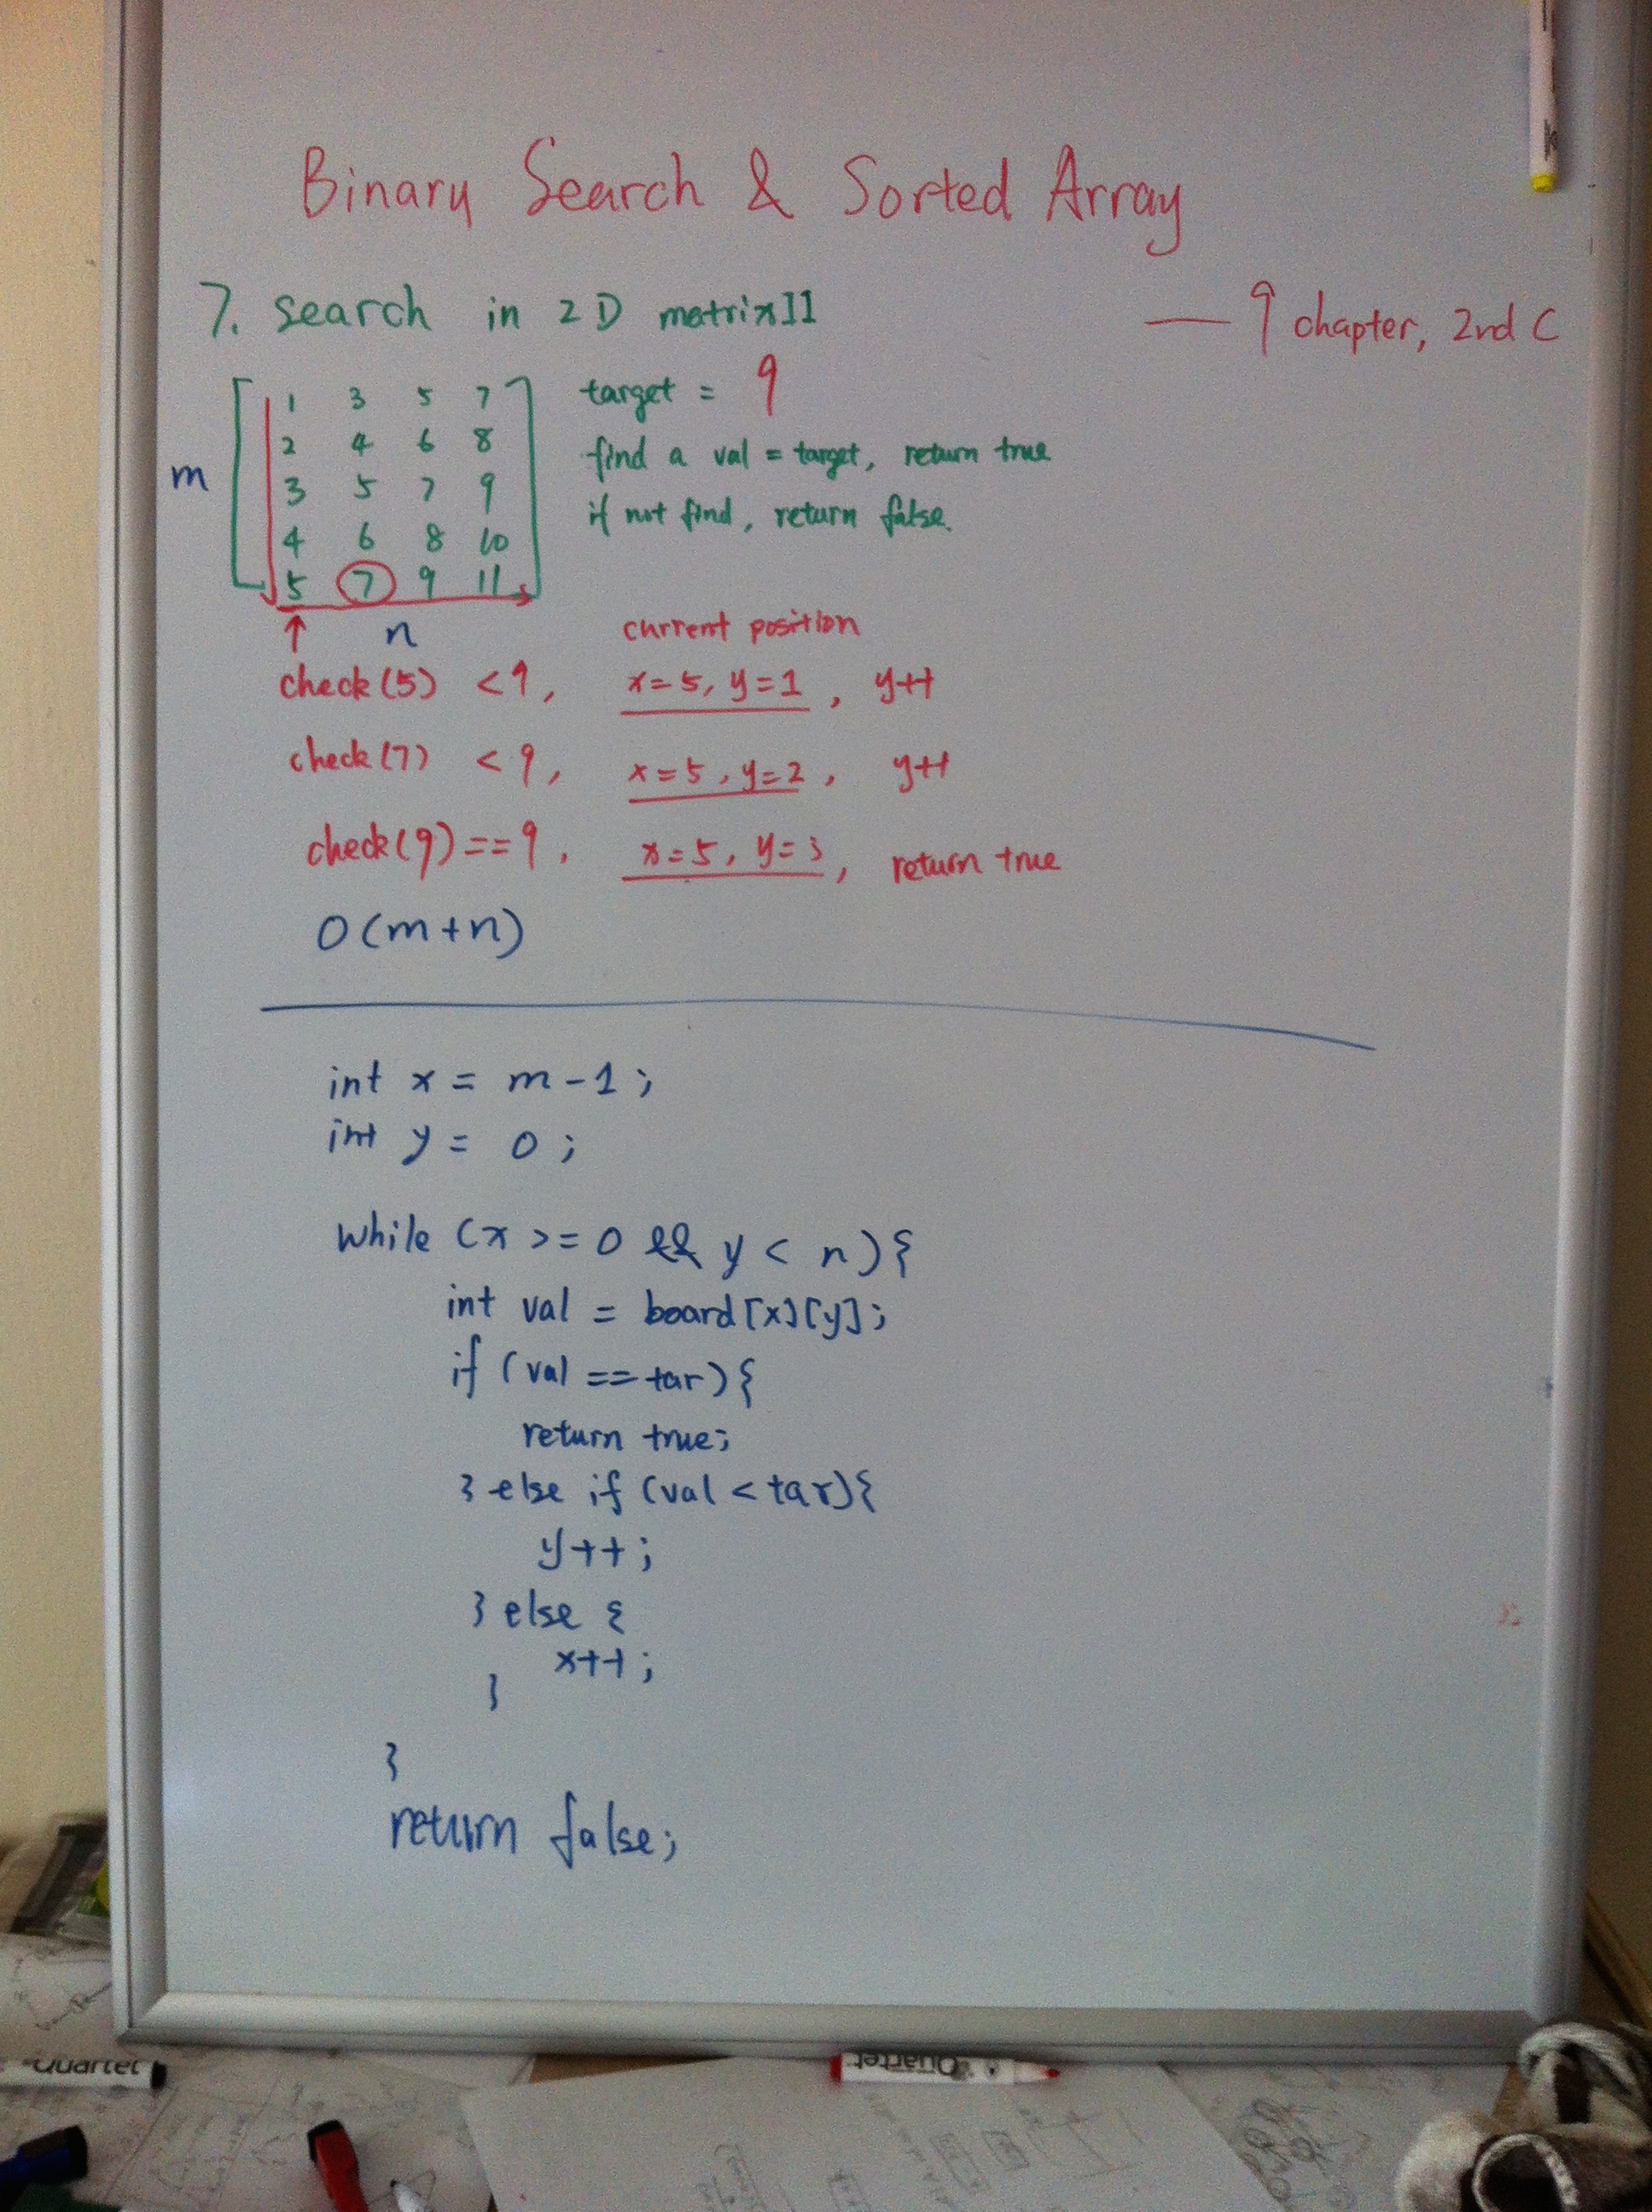 Binary Search & Sorted Array
7. search in 2D matrix II
— 9 chapter, 2nd C
1 3 5 7
target = 9
2 4 6 8
find a val = target, return true
m
3 5 7 9
if not find, return false.
4 6 8 10
5 7 9 11
n
current position
check(5) < 9, x=5, y=1, y++
check(7) < 9, x=5, y=2, y++
check(9) == 9, x=5, y=3, return true
O(m+n)
int x = m-1;
int y = 0;
while (x >= 0 && y < n){
int val = board[x][y];
if (val == tar){
return true;
} else if (val < tar){
y++;
} else {
x++;
}
}
return false;
Quartet
Quartet